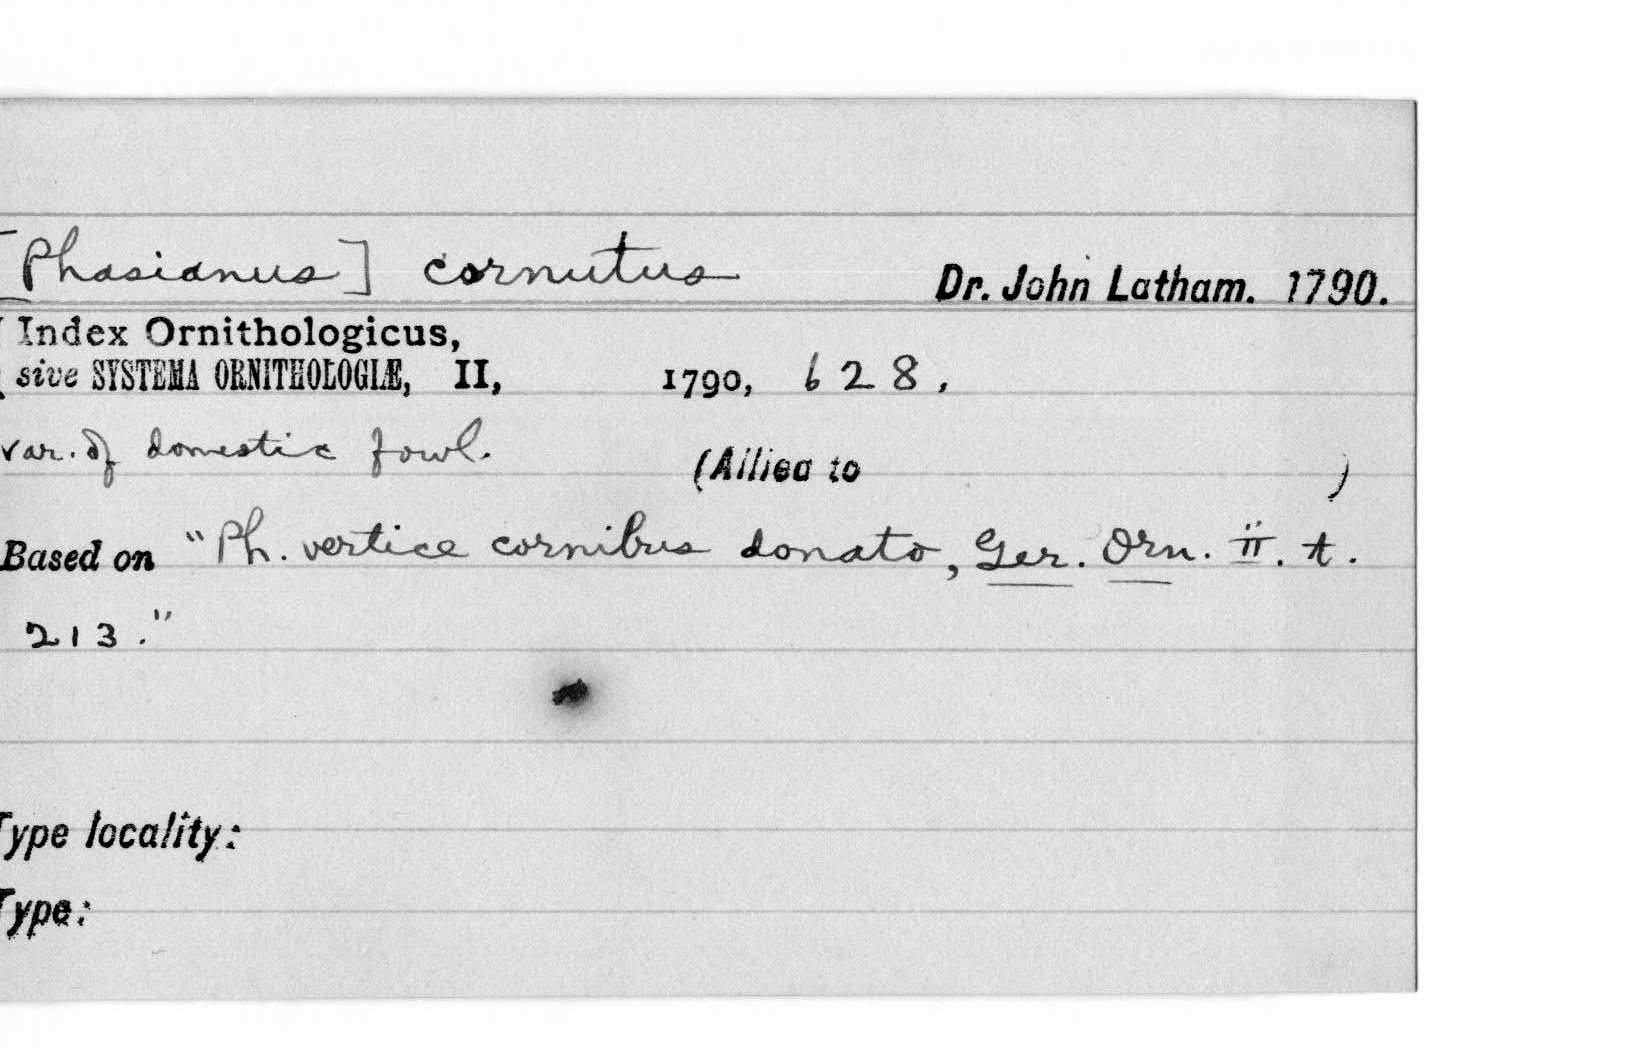 [Phasianus] cornutus Dr. John Latham. 1790.
Index Ornithologicus,
sive SYSTEMA ORNITHOLOGIÆ, II, 1790, 628.
var. of domestic fowl. (Allied to )
Based on "Ph. vertice cornibus donato, Ger. Orn. ii. t.
213."
Type locality:
Type: